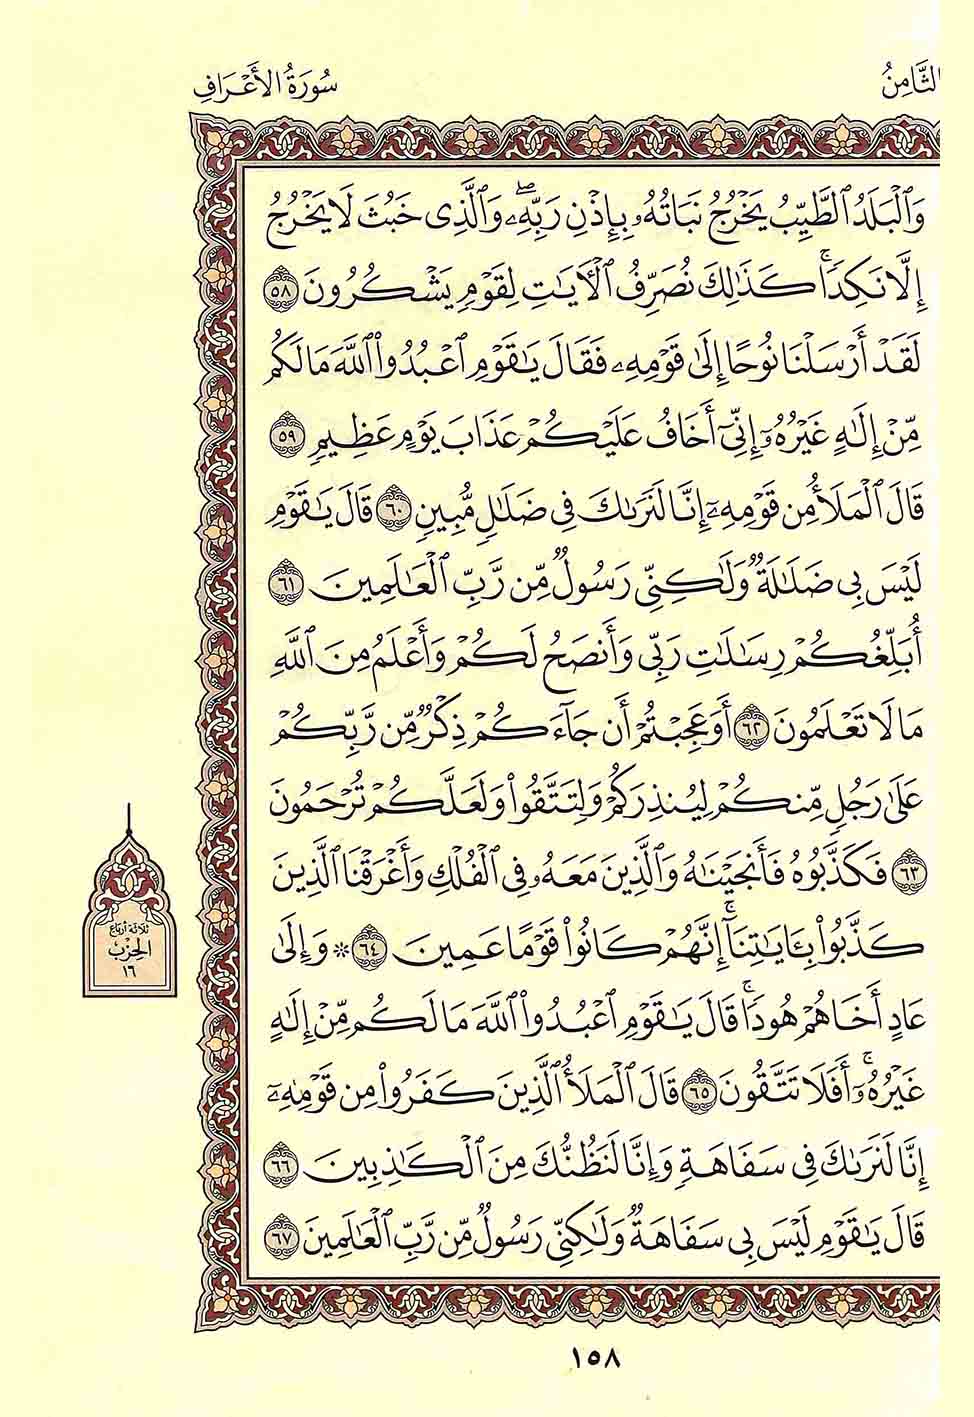 الثَّامِنُ
سُورَةُ الأَعْرَافِ
وَٱلْبَلَدُ ٱلطَّيِّبُ يَخْرُجُ نَبَاتُهُۥ بِإِذْنِ رَبِّهِۦۖ وَٱلَّذِى خَبُثَ لَا يَخْرُجُ
إِلَّا نَكِدًاۚ كَذَٰلِكَ نُصَرِّفُ ٱلْأٓيَٰتِ لِقَوْمٍ يَشْكُرُونَ ٥٨
لَقَدْ أَرْسَلْنَا نُوحًا إِلَىٰ قَوْمِهِۦ فَقَالَ يَٰقَوْمِ ٱعْبُدُوا۟ ٱللَّهَ مَا لَكُم
مِّنْ إِلَٰهٍ غَيْرُهُۥٓ إِنِّىٓ أَخَافُ عَلَيْكُمْ عَذَابَ يَوْمٍ عَظِيمٍ ٥٩
قَالَ ٱلْمَلَأُ مِن قَوْمِهِۦٓ إِنَّا لَنَرَىٰكَ فِى ضَلَٰلٍ مُّبِينٍ ٦٠ قَالَ يَٰقَوْمِ
لَيْسَ بِى ضَلَٰلَةٌ وَلَٰكِنِّى رَسُولٌ مِّن رَّبِّ ٱلْعَٰلَمِينَ ٦١
أُبَلِّغُكُمْ رِسَٰلَٰتِ رَبِّى وَأَنصَحُ لَكُمْ وَأَعْلَمُ مِنَ ٱللَّهِ
مَا لَا تَعْلَمُونَ ٦٢ أَوَعَجِبْتُمْ أَن جَآءَكُمْ ذِكْرٌ مِّن رَّبِّكُمْ
عَلَىٰ رَجُلٍ مِّنكُمْ لِيُنذِرَكُمْ وَلِتَتَّقُوا۟ وَلَعَلَّكُمْ تُرْحَمُونَ
٦٣ فَكَذَّبُوهُ فَأَنجَيْنَٰهُ وَٱلَّذِينَ مَعَهُۥ فِى ٱلْفُلْكِ وَأَغْرَقْنَا ٱلَّذِينَ
كَذَّبُوا۟ بِـَٔايَٰتِنَآۚ إِنَّهُمْ كَانُوا۟ قَوْمًا عَمِينَ ٦٤ * وَإِلَىٰ
عَادٍ أَخَاهُمْ هُودًاۚ قَالَ يَٰقَوْمِ ٱعْبُدُوا۟ ٱللَّهَ مَا لَكُم مِّنْ إِلَٰهٍ
غَيْرُهُۥٓۚ أَفَلَا تَتَّقُونَ ٦٥ قَالَ ٱلْمَلَأُ ٱلَّذِينَ كَفَرُوا۟ مِن قَوْمِهِۦٓ
إِنَّا لَنَرَىٰكَ فِى سَفَاهَةٍ وَإِنَّا لَنَظُنُّكَ مِنَ ٱلْكَٰذِبِينَ ٦٦
قَالَ يَٰقَوْمِ لَيْسَ بِى سَفَاهَةٌ وَلَٰكِنِّى رَسُولٌ مِّن رَّبِّ ٱلْعَٰلَمِينَ ٦٧
ثلاثة أرباع
الحزب
١٦
١٥٨